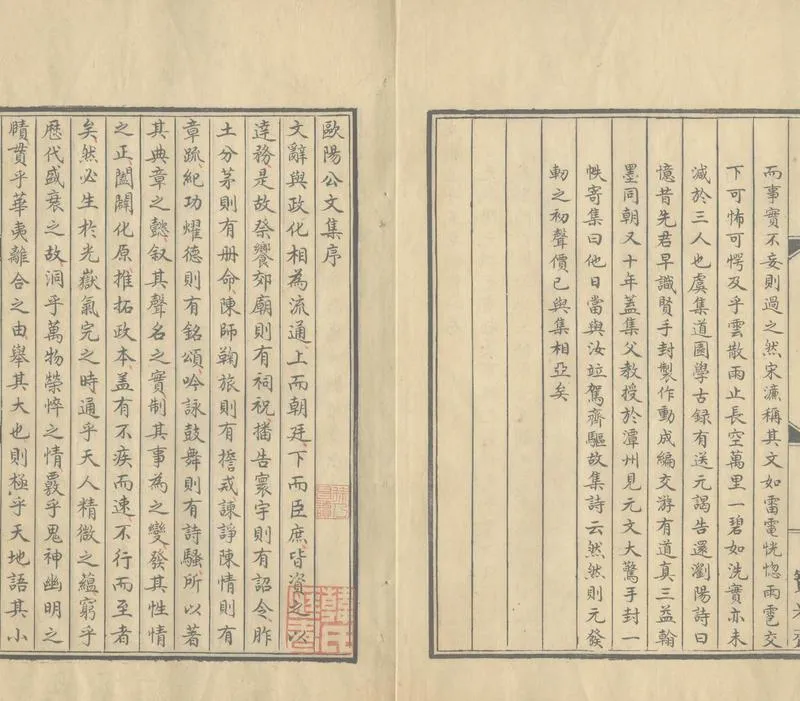 而事實不妄則過之然宋濂稱其文如雷電恍惚雨雹交
下可怖可愕及乎雲散雨止長空萬里一碧如洗實亦未
減於三人也虞集道園學古録有送元謁告還瀏陽詩曰
憶昔先君早識賢手封製作動成編交游有道真三益翰
墨同朝又十年蓋集父教授於潭州見元文大驚手封一
帙寄集曰他日當與汝竝駕齊驅故集詩云然然則元發
軔之初聲價已與集相亞矣
歐陽公文集序
文辭與政化相為流通上而朝廷下而臣庶皆資之以
達務是故祭饗郊廟則有祠祝播告寰宇則有詔令胙
土分茅則有册命陳師鞠旅則有誓戒諫諍陳情則有
章疏紀功燿德則有銘頌吟詠鼓舞則有詩騷所以著
其典章之懿叙其聲名之實制其事為之變發其性情
之正闔闢化原推拓政本盖有不疾而速不行而至者
矣然必生於光嶽氣完之時通乎天人精微之藴窮乎
厯代盛衰之故洞乎萬物榮悴之情覈乎鬼神幽明之
賾貫乎華夷離合之由舉其大也則極乎天地語其小